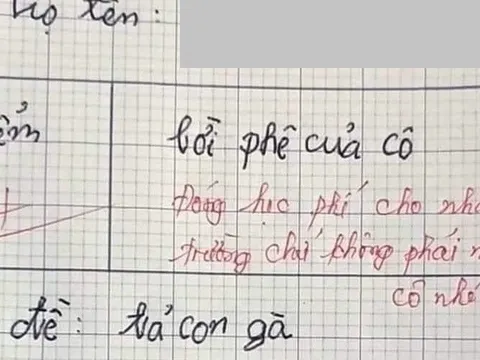 họ tên:
điểm
lời phê của cô
Đóng học phí cho nhà
trường chứ không phải
cô nhé
đề: tả con gà